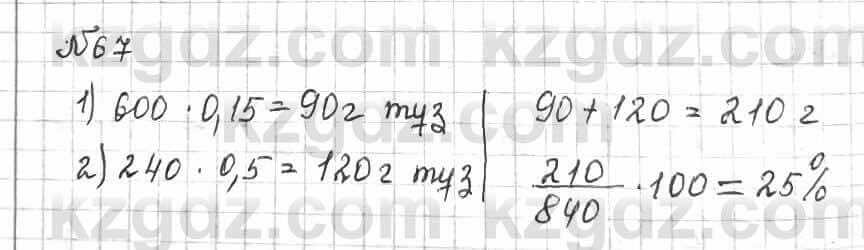 №67
1) 600 · 0,15 = 90г туз
2) 240 · 0,5 = 120г туз
90 + 120 = 210 г
210/840 · 100 = 25%
kzgdz.com kzgdz.com
kzgdz.com kzgdz.com
kzgdz.com kzgdz.com